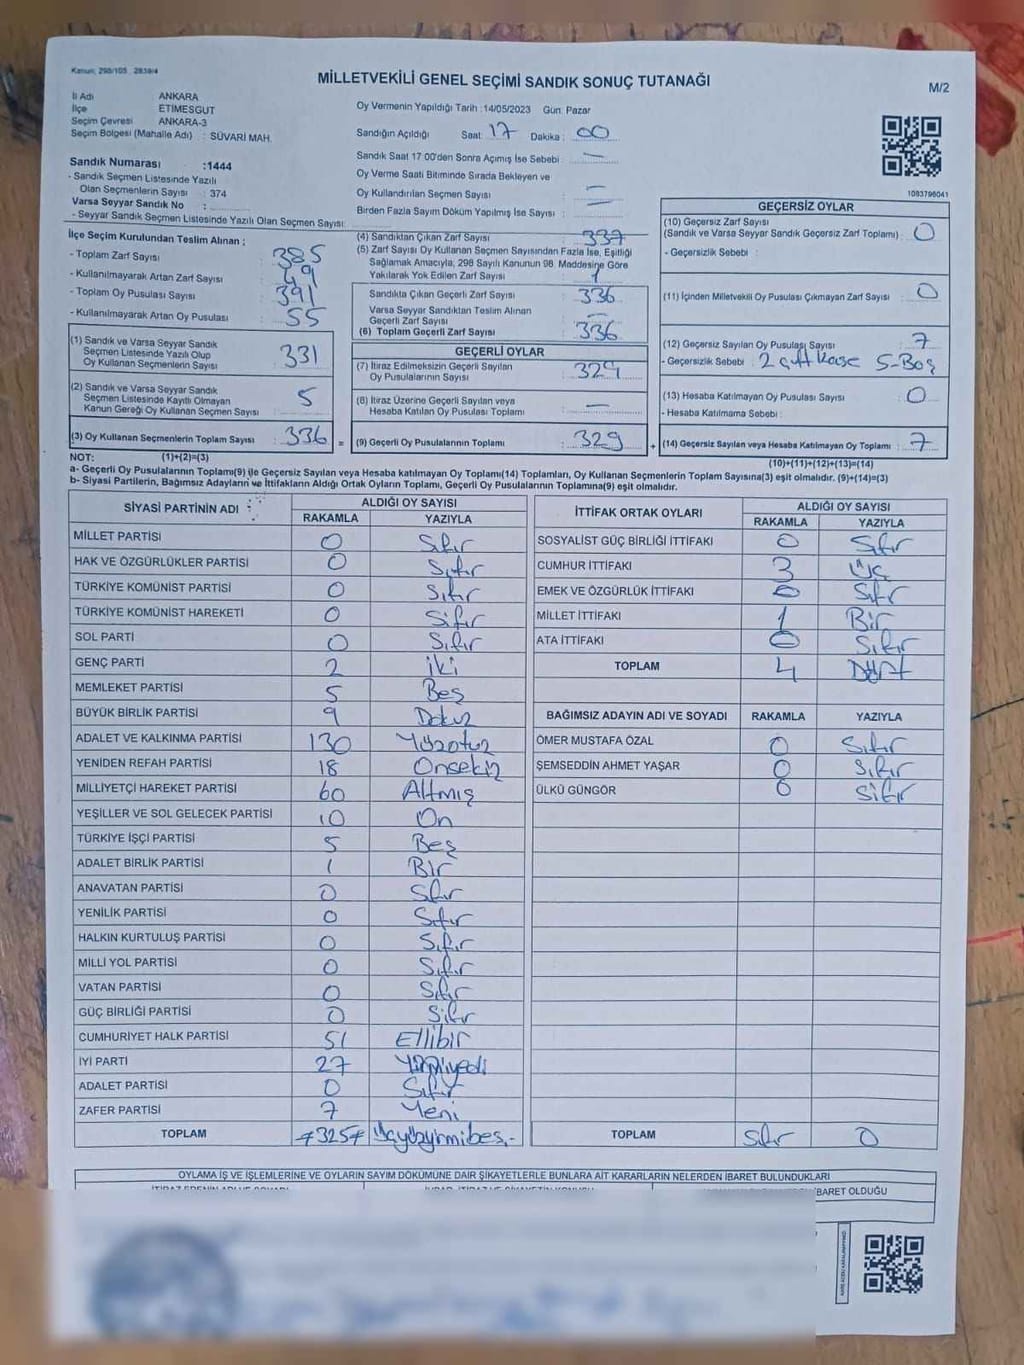 Kanun: 298/105 2839/4
MİLLETVEKİLİ GENEL SEÇİMİ SANDIK SONUÇ TUTANAĞI
M/2
İl Adı ANKARA
İlçe ETİMESGUT
Seçim Çevresi ANKARA-3
Seçim Bölgesi (Mahalle Adı) : SÜVARİ MAH.
Oy Vermenin Yapıldığı Tarih :14/05/2023 Gün: Pazar
Sandığın Açıldığı Saat: 17 Dakika : 00
Sandık Saat 17:00'den Sonra Açımış İse Sebebi : —
Oy Verme Saati Bitiminde Sırada Bekleyen ve
Oy Kullandırılan Seçmen Sayısı : —
Birden Fazla Sayım Döküm Yapılmış İse Sayısı : —
1083796041
Sandık Numarası :1444
- Sandık Seçmen Listesinde Yazılı
Olan Seçmenlerin Sayısı : 374
Varsa Seyyar Sandık No :
- Seyyar Sandık Seçmen Listesinde Yazılı Olan Seçmen Sayısı:
İlçe Seçim Kurulundan Teslim Alınan ;
- Toplam Zarf Sayısı : 385
- Kullanılmayarak Artan Zarf Sayısı : 49
- Toplam Oy Pusulası Sayısı : 391
- Kullanılmayarak Artan Oy Pusulası : 55
(1) Sandık ve Varsa Seyyar Sandık
Seçmen Listesinde Yazılı Olup
Oy Kullanan Seçmenlerin Sayısı : 331
(2) Sandık ve Varsa Seyyar Sandık
Seçmen Listesinde Kayıtlı Olmayan
Kanun Gereği Oy Kullanan Seçmen Sayısı : 5
(3) Oy Kullanan Seçmenlerin Toplam Sayısı : 336 =
(4) Sandıktan Çıkan Zarf Sayısı : 337
(5) Zarf Sayısı Oy Kullanan Seçmen Sayısından Fazla İse, Eşitliği
Sağlamak Amacıyla, 298 Sayılı Kanunun 98. Maddesine Göre
Yakılarak Yok Edilen Zarf Sayısı : 1
Sandıkta Çıkan Geçerli Zarf Sayısı : 336
Varsa Seyyar Sandıktan Teslim Alınan
Geçerli Zarf Sayısı : —
(6) Toplam Geçerli Zarf Sayısı : 336
GEÇERLİ OYLAR
(7) İtiraz Edilmeksizin Geçerli Sayılan
Oy Pusulalarının Sayısı : 329
(8) İtiraz Üzerine Geçerli Sayılan veya
Hesaba Katılan Oy Pusulası Toplamı : —
(9) Geçerli Oy Pusulalarının Toplamı : 329 +
GEÇERSİZ OYLAR
(10) Geçersiz Zarf Sayısı
(Sandık ve Varsa Seyyar Sandık Geçersiz Zarf Toplamı) : 0
- Geçersizlik Sebebi :
(11) İçinden Milletvekili Oy Pusulası Çıkmayan Zarf Sayısı : 0
(12) Geçersiz Sayılan Oy Pusulası Sayısı : 7
- Geçersizlik Sebebi : 2 çift kaşe 5-Boş
(13) Hesaba Katılmayan Oy Pusulası Sayısı : 0
- Hesaba Katılmama Sebebi :
(14) Geçersiz Sayılan veya Hesaba Katılmayan Oy Toplamı : 7
NOT: (1)+(2)=(3)
(10)+(11)+(12)+(13)=(14)
a- Geçerli Oy Pusulalarının Toplamı(9) ile Geçersiz Sayılan veya Hesaba katılmayan Oy Toplamı(14) Toplamları, Oy Kullanan Seçmenlerin Toplam Sayısına(3) eşit olmalıdır. (9)+(14)=(3)
b- Siyasi Partilerin, Bağımsız Adayların ve İttifakların Aldığı Ortak Oyların Toplamı, Geçerli Oy Pusulalarının Toplamına(9) eşit olmalıdır.
SİYASİ PARTİNİN ADI ALDIĞI OY SAYISI
RAKAMLA YAZIYLA
MİLLET PARTİSİ 0 Sıfır
HAK VE ÖZGÜRLÜKLER PARTİSİ 0 Sıfır
TÜRKİYE KOMÜNİST PARTİSİ 0 Sıfır
TÜRKİYE KOMÜNİST HAREKETİ 0 Sıfır
SOL PARTİ 0 Sıfır
GENÇ PARTİ 2 iki
MEMLEKET PARTİSİ 5 Beş
BÜYÜK BİRLİK PARTİSİ 9 Dokuz
ADALET VE KALKINMA PARTİSİ 130 Yüzotuz
YENİDEN REFAH PARTİSİ 18 Onsekiz
MİLLİYETÇİ HAREKET PARTİSİ 60 Altmış
YEŞİLLER VE SOL GELECEK PARTİSİ 10 On
TÜRKİYE İŞÇİ PARTİSİ 5 Beş
ADALET BİRLİK PARTİSİ 1 Bir
ANAVATAN PARTİSİ 0 Sıfır
YENİLİK PARTİSİ 0 Sıfır
HALKIN KURTULUŞ PARTİSİ 0 Sıfır
MİLLİ YOL PARTİSİ 0 Sıfır
VATAN PARTİSİ 0 Sıfır
GÜÇ BİRLİĞİ PARTİSİ 0 Sıfır
CUMHURİYET HALK PARTİSİ 51 Ellibir
İYİ PARTİ 27 Yirmiyedi
ADALET PARTİSİ 0 Sıfır
ZAFER PARTİSİ 7 Yedi
TOPLAM 325 Üçyüzyirmibeş.-
İTTİFAK ORTAK OYLARI ALDIĞI OY SAYISI
RAKAMLA YAZIYLA
SOSYALİST GÜÇ BİRLİĞİ İTTİFAKI 0 Sıfır
CUMHUR İTTİFAKI 3 Üç
EMEK VE ÖZGÜRLÜK İTTİFAKI 0 Sıfır
MİLLET İTTİFAKI 1 Bir
ATA İTTİFAKI 0 Sıfır
TOPLAM 4 Dört
BAĞIMSIZ ADAYIN ADI VE SOYADI RAKAMLA YAZIYLA
ÖMER MUSTAFA ÖZAL 0 Sıfır
ŞEMSEDDİN AHMET YAŞAR 0 Sıfır
ÜLKÜ GÜNGÖR 0 Sıfır
TOPLAM Sıfır 0
OYLAMA İŞ VE İŞLEMLERİNE VE OYLARIN SAYIM DÖKÜMÜNE DAİR ŞİKAYETLERLE BUNLARA AİT KARARLARIN NELERDEN İBARET BULUNDUKLARI
BARET OLDUĞU